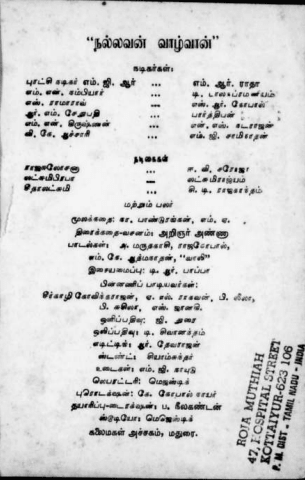 “நல்லவன் வாழ்வான்”
நடிகர்கள்:
புரட்சி நடிகர் எம். ஜி. ஆர் ... எம். ஆர். ராதா
எம். என். நம்பியார் ... டி.
எஸ். ராமராவ் ... எஸ். ஆர். கோபால்
ஆர். எம். சேதுபதி ... பார்த்திபன்
எம். என். கிருஷ்ணன் ... என். எஸ். நடராஜன்
வி. கே. ஆச்சாரி ... எம். ஜி. சாமிநாதன்
நடிகைகள்
ராஜசுலோசனா ... ஈ. வி. சரோஜா
லட்சுமிபிரபா ... லட்சுமிராஜ்யம்
சீதாலட்சுமி ... சி. டி. ராஜகாந்தம்
மற்றும் பலர்
மூலக்கதை: நா. பாண்டுரங்கன், எம். ஏ.
திரைக்கதை-வசனம்: அறிஞர் அண்ணா
பாடல்கள்: அ. மருதகாசி, ராஜகோபால்,
எம். கே. ஆத்மநாதன், “வாலி”
இசையமைப்பு: டி. ஆர். பாப்பா
பின்னணிப் பாடியவர்கள்:
சீர்காழி கோவிந்தராஜன், ஏ. எல். ராகவன், பி. லீலா,
பி. சுசீலா, எஸ். ஜானகி.
ஒளிப்பதிவு: ஜி. துரை
ஒலிப்பதிவு: டி. சிவானந்தம்
எடிட்டிங்: ஆர். தேவராஜன்
ஸ்டண்ட்: சியாம்சுந்தர்
உடைகள்: எம். ஜி. நாயுடு
லெபரட்டரி: மெஜஸ்டிக்
புரொடக்‌ஷன்: கே. கோபால் நாயர்
தயாரிப்பு-டைரக்‌ஷன்: ப. நீலகண்டன்
ஸ்டூடியோ: மெஜெஸ்டிக்
கலைமகள் அச்சகம், மதுரை.
ROJA MUTHIAH
47, HOSPITAL STREET
KOTTAIYUR-623 106
P. M. DIST - TAMIL NADU - INDIA